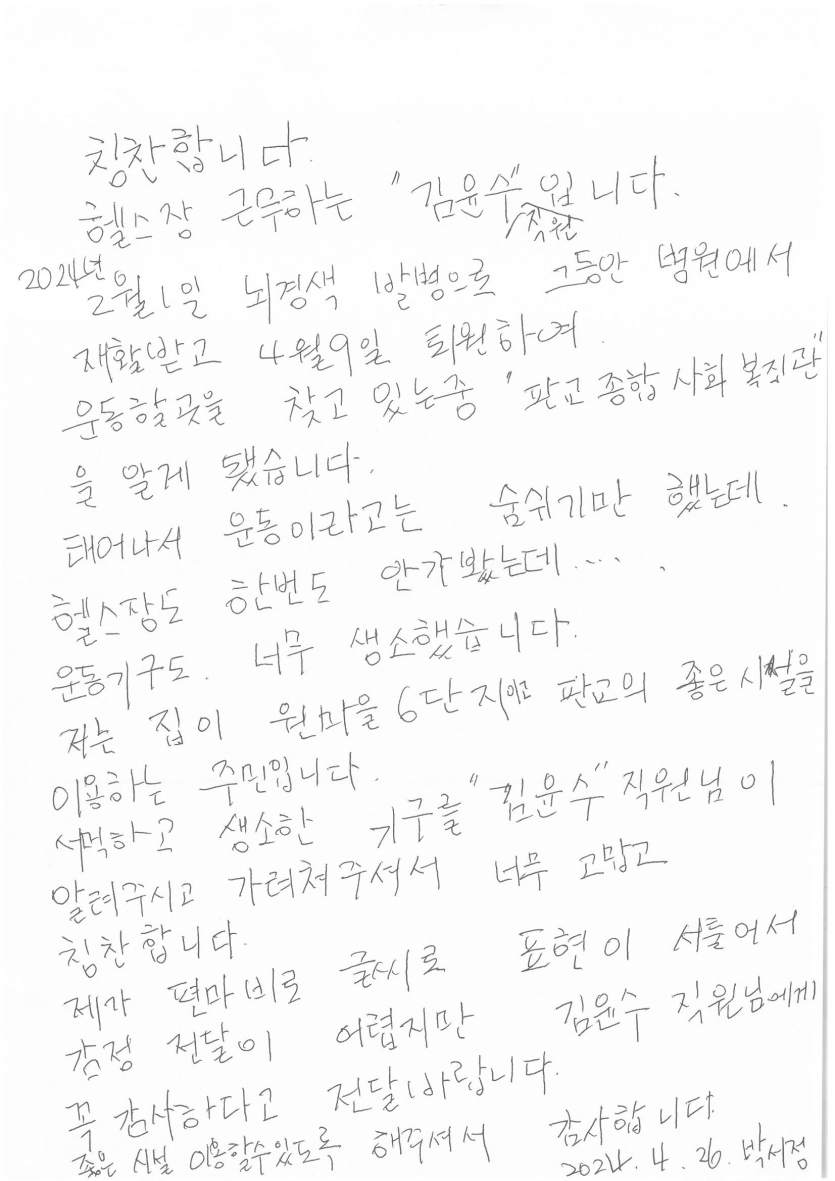 칭찬합니다.
헬스장 근무하는 "김윤수" 직원 입니다.
2024년 2월 1일 뇌경색 발병으로 그동안 병원에서
재활받고 4월9일 퇴원하여.
운동할곳을 찾고 있는중 "판교종합사회복지관"
을 알게 됐습니다.
태어나서 운동이라고는 숨쉬기만 했는데.
헬스장도 한번도 안가봤는데.....
운동기구도. 너무 생소했습니다.
저는 집이 원마을 6단지이고 판교의 좋은 시설을
이용하는 주민입니다.
서먹하고 생소한 기구를 "김윤수" 직원님이
알려주시고 가려쳐주셔서 너무 고맙고
칭찬합니다.
제가 편마비로 글씨로 표현이 서툴어서
감정 전달이 어렵지만 김윤수 직원님에게
꼭 감사하다고 전달바랍니다.
좋은 시설 이용할수있도록 해주셔서 감사합니다.
2024. 4. 26. 박서정